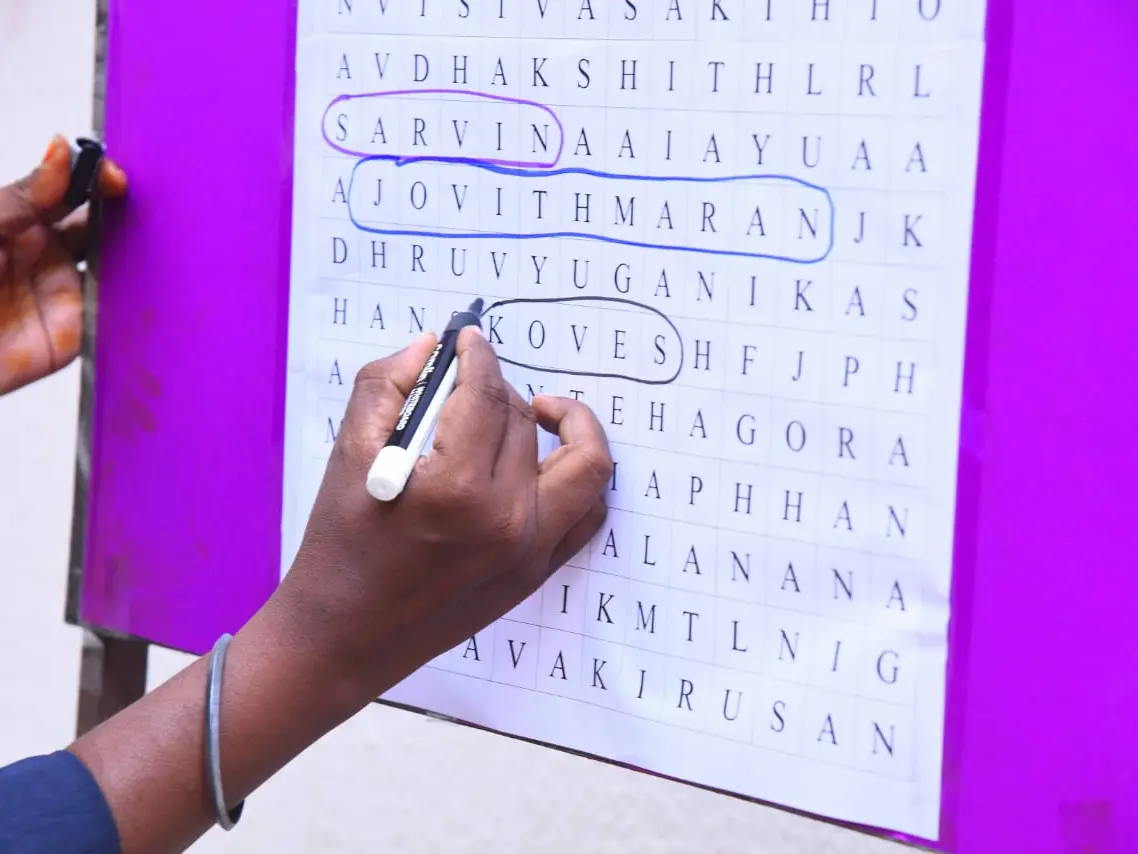 N V I S I V A S A K T H I O
A V D H A K S H I T H L R L
S A R V I N A A I A Y U A A
A J O V I T H M A R A N J K
D H R U V Y U G A N I K A S
H A N S K O V E S H F J P H
A N T E H A G O R A
M I A P H H A N
A L A N A N A
I K M T L N I G
A V A K I R U S A N
camlin WHITEBOARD